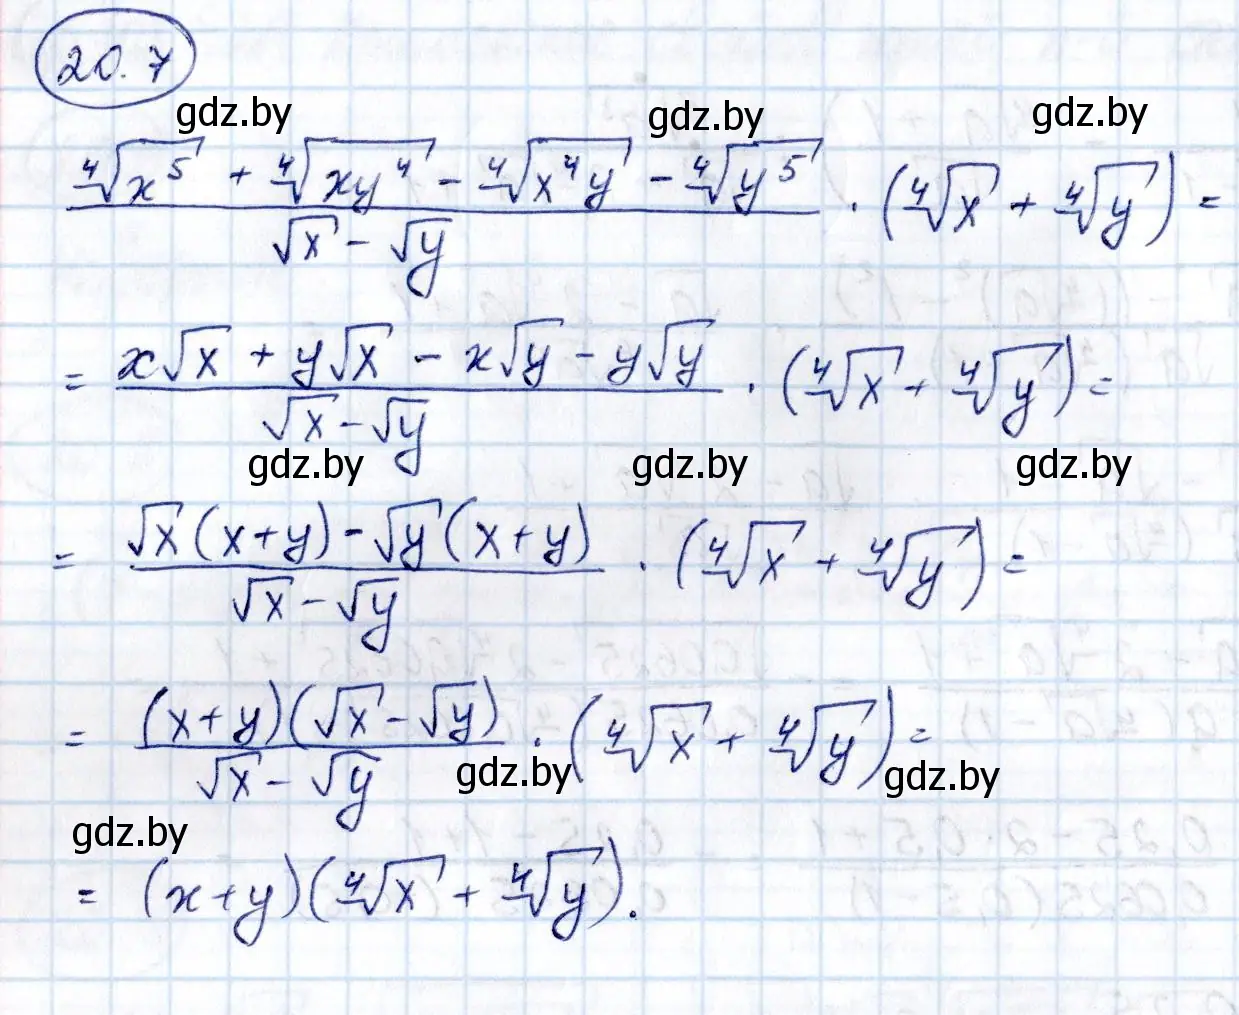 20.7
gdz.by gdz.by gdz.by
(⁴√x⁵ + ⁴√xy⁴ - ⁴√x⁴y - ⁴√y⁵)/(√x - √y) · (⁴√x + ⁴√y) =
= (x√x + y√x - x√y - y√y)/(√x - √y) · (⁴√x + ⁴√y) =
gdz.by gdz.by gdz.by
= (√x(x+y) - √y(x+y))/(√x - √y) · (⁴√x + ⁴√y) =
= ((x+y)(√x - √y))/(√x - √y) · (⁴√x + ⁴√y) =
gdz.by gdz.by
gdz.by
= (x+y)(⁴√x + ⁴√y).